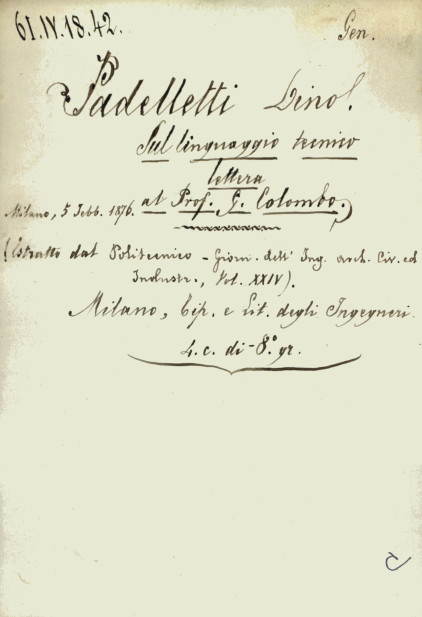 61.IV.18.42.
Gen.
Padelletti Dino.
Sul linguaggio tecnico
lettera
Milano, 5 Febb. 1876. al Prof. G. Colombo.)
(Estratto dal Politecnico - Giorn. dell' Ing. arch. Civ. ed
Industr., Vol. XXIV).
Milano, Tip. e Lit. degli Ingegneri.
4. c. di - 8.° gr.